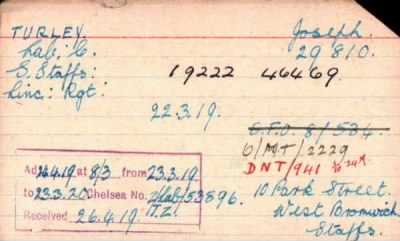 TURLEY. Joseph.
Lab: C. 29810.
S. Staffs: 19222 46469.
Linc: Rgt:
22.3.19.
E.F.O. 8/534.
6/MT/2229
DNT/941
Ad 26.4.19 at 8/3 from 23.3.19.
to 23.3.20 Chelsea No. /53896.
Received 26.4.19
10 Park Street.
West Bromwich
Staffs.